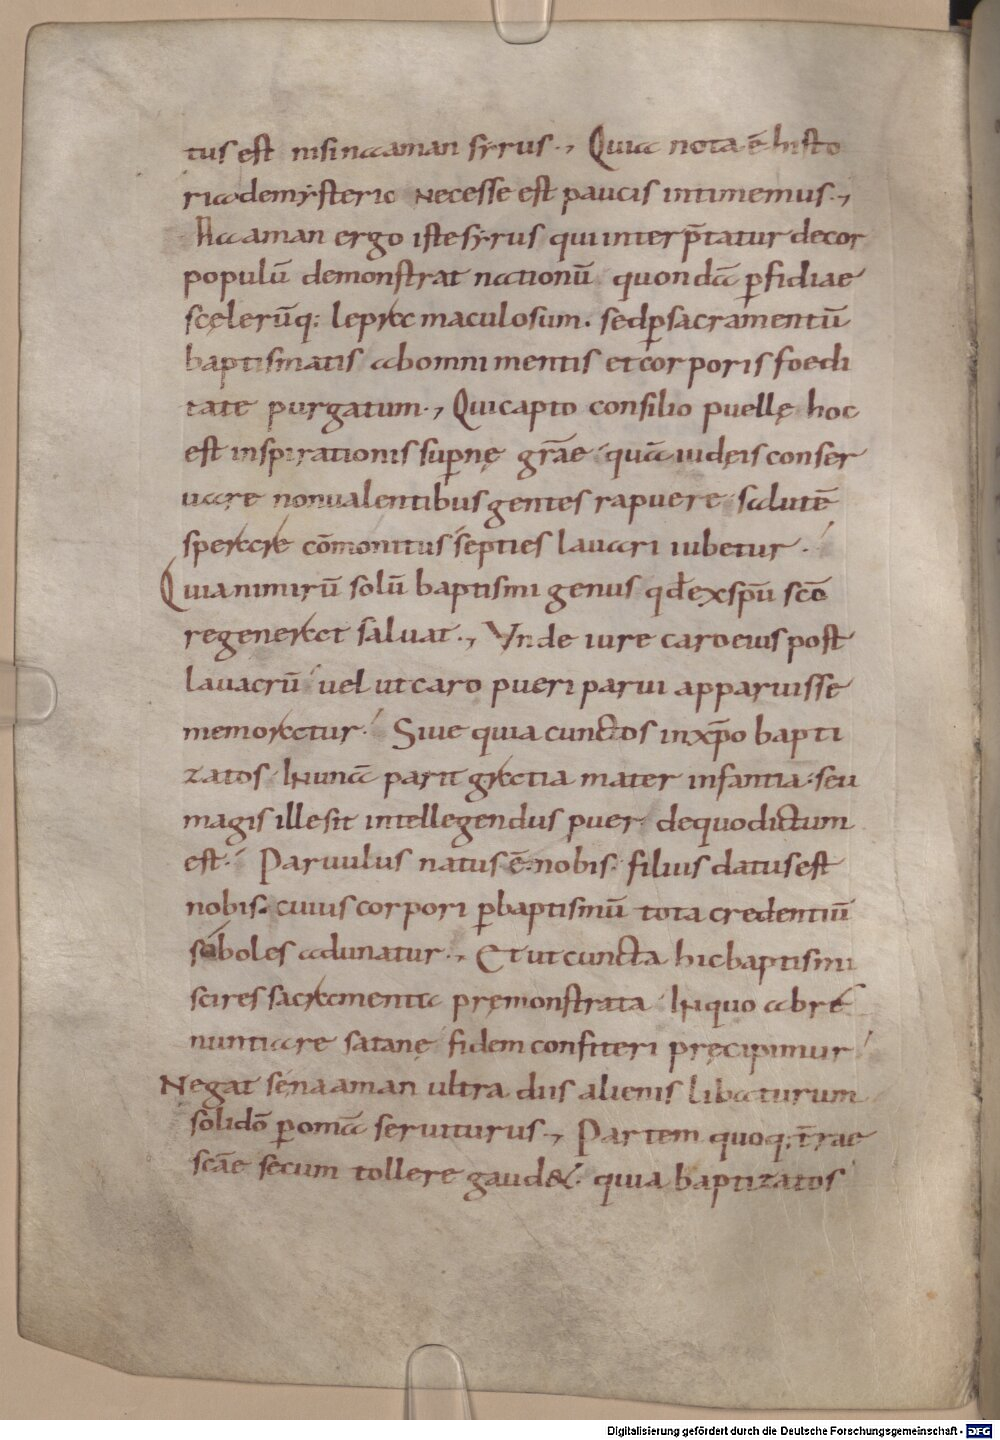 tus est nisi naaman syrus·, Quia nota ē histo
ria de mysterio necesse est paucis intimemus·,
Naaman ergo iste syrus qui interp̄tatur decor
populū demonstrat nationū quondā ꝑfidiae
scęlerūq; lepra maculosum. sed ꝑ sacramentū
baptismatis ab omni mentis et corporis foedi
tate purgatum·, Qui capto consilio puellę hoc
est inspirationis supnę gr̄ae quā iudęis conser
uare non ualentibus gentes rapuere salutē
sperare cōmonitus septies lauari iubetur·
Quia nimirū solū baptismi genus qđ ex sp̄u sc̄o
regenerat saluat·, Vnde iure caro eius post
lauacrū uel ut caro pueri parui apparuisse
memoratur· Siue quia cunctos in xp̄o bapti
zatos In unā parit gratia mater infantia· seu
magis ille sit intellegendus puer de quo dictum
est· Paruulus natus ē nobis· filius datus est
nobis. cuius corpori ꝑ baptismū tota credentiū
soboles adunatur·, Et ut cuncta hic baptismi
scires sacramenta pręmonstrata In quo abre
nuntiare satanę fidem confiteri pręcipimur
Negat se naaman ultra diis alienis libaturum
soli dō ꝑ omā seruiturus·, Partem quoq; t̄rae
sc̄ae secum tollere gaud&· quia baptizatos
Digitalisierung gefördert durch die Deutsche Forschungsgemeinschaft - DFG